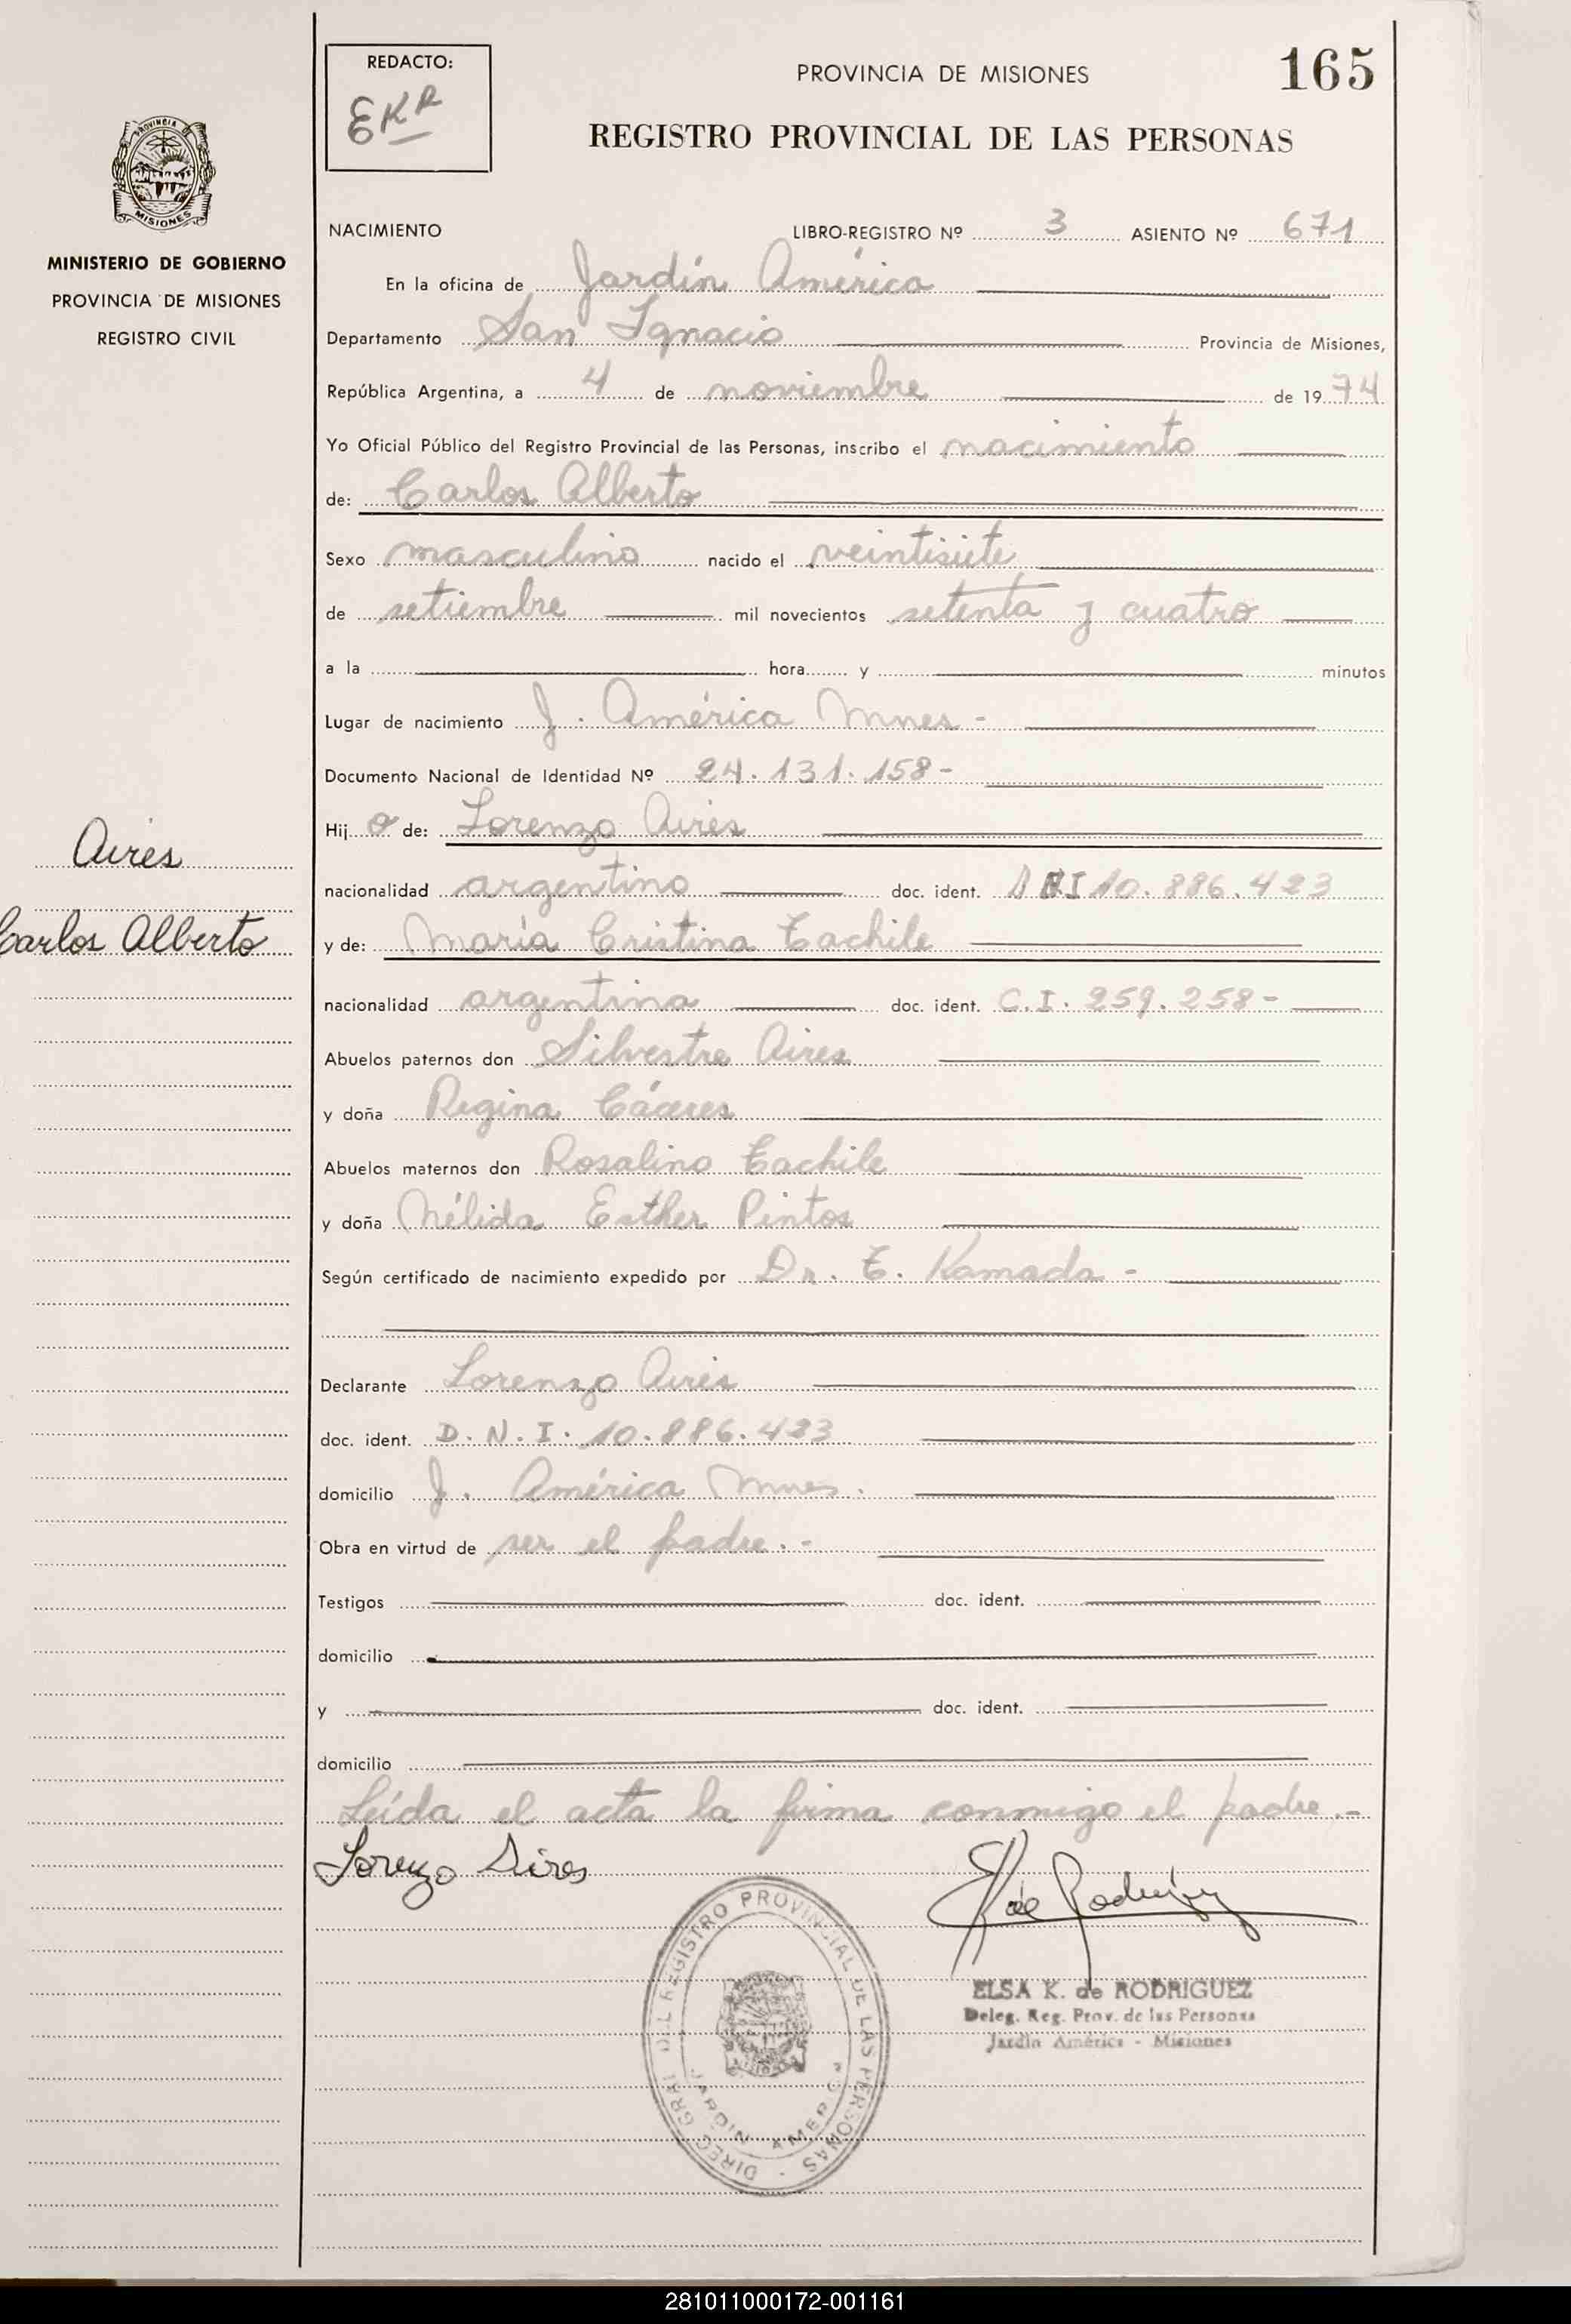 165
REDACTO:
EKR
PROVINCIA DE MISIONES
REGISTRO PROVINCIAL DE LAS PERSONAS
PROVINCIA DE
MISIONES
MINISTERIO DE GOBIERNO
PROVINCIA DE MISIONES
REGISTRO CIVIL
NACIMIENTO LIBRO-REGISTRO Nº 3 ASIENTO Nº 671
En la oficina de Jardín América
Departamento San Ignacio Provincia de Misiones,
República Argentina, a 4 de noviembre de 1974
Yo Oficial Público del Registro Provincial de las Personas, inscribo el nacimiento
de: Carlos Alberto
Sexo masculino nacido el veintisiete
de setiembre mil novecientos setenta y cuatro
a la hora y minutos
Lugar de nacimiento J. América Mnes -
Documento Nacional de Identidad Nº 24.131.158-
Hijo de: Lorenzo Aires
Aires
nacionalidad argentino doc. ident. 10.886.423
Carlos Alberto
y de: María Cristina Tachile
nacionalidad argentina doc. ident. C.I. 259.258-
Abuelos paternos don Silvestre Aires
y doña Regina Cáceres
Abuelos maternos don Rosalino Tachile
y doña Nélida Esther Pintos
Según certificado de nacimiento expedido por Dr. T. Kamada -
Declarante Lorenzo Aires
doc. ident. D.N.I. 10.886.423
domicilio J. América Mnes.
Obra en virtud de ser el padre.-
Testigos doc. ident.
domicilio
y doc. ident.
domicilio
Leída el acta la firma conmigo el padre.-
Lorenzo Aires
de Rodríguez
DIREC. GRAL. DEL REGISTRO PROVINCIAL DE LAS PERSONAS -
JARDIN AMERICA
ELSA K. de RODRIGUEZ
Deleg. Reg. Prov. de las Personas
Jardín América - Misiones
281011000172-001161